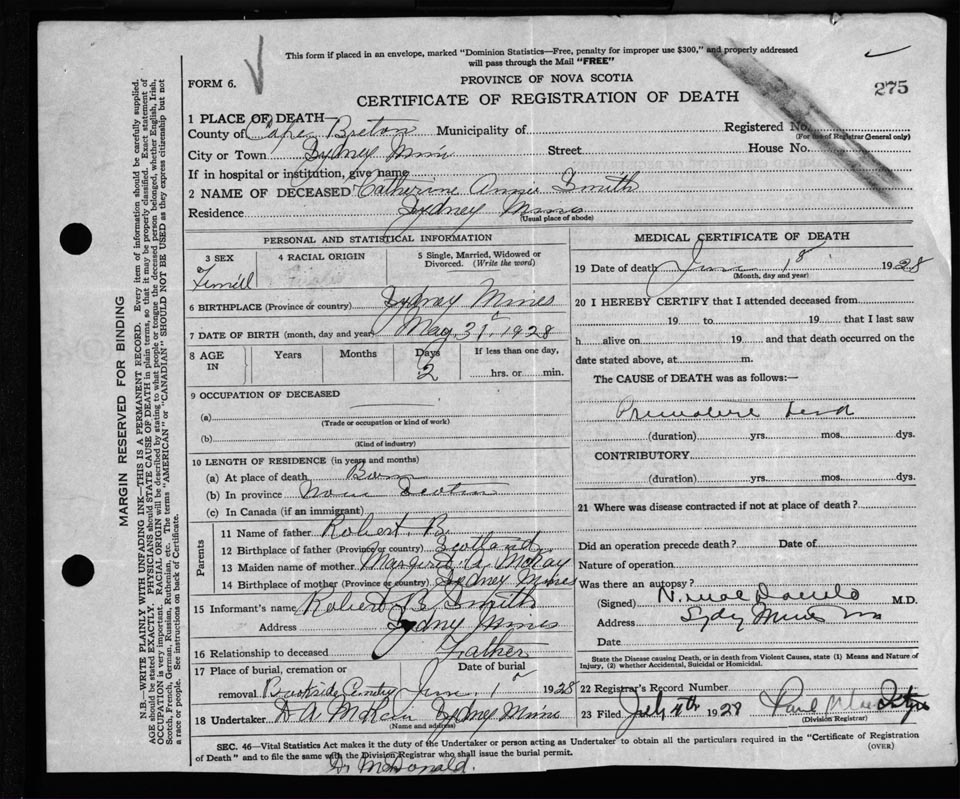 This form if placed in an envelope, marked "Dominion Statistics—Free, penalty for improper use $300," and properly addressed
will pass through the Mail "FREE"
FORM 6.
PROVINCE OF NOVA SCOTIA
275
CERTIFICATE OF REGISTRATION OF DEATH
1 PLACE OF DEATH
County of Cape Breton Municipality of Registered No.
(For use of Registrar General only)
City or Town Sydney Mines Street House No.
If in hospital or institution, give name
2 NAME OF DECEASED Catherine Annie Smith
Residence Sydney Mines
(Usual place of abode)
PERSONAL AND STATISTICAL INFORMATION
3 SEX 4 RACIAL ORIGIN 5 Single, Married, Widowed or
Divorced. (Write the word)
6 BIRTHPLACE (Province or country) Sydney Mines
7 DATE OF BIRTH (month, day and year) May 31 1928
8 AGE IN Years Months Days If less than one day,
2 hrs. or min.
9 OCCUPATION OF DECEASED
(a)
(Trade or occupation or kind of work)
(b)
(Kind of industry)
10 LENGTH OF RESIDENCE (in years and months)
(a) At place of death Born
(b) In province Nova Scotia
(c) In Canada (if an immigrant)
Parents
11 Name of father Robert B.
12 Birthplace of father (Province or country) Scotland
13 Maiden name of mother Margaret A. McKay
14 Birthplace of mother (Province or country) Sydney Mines
15 Informant's name Robert B. Smith
Address Sydney Mines
16 Relationship to deceased Father
17 Place of burial, cremation or Date of burial
removal 1928
18 Undertaker D A Sydney Mines
(Name and address)
MEDICAL CERTIFICATE OF DEATH
19 Date of death June 1 1928
(Month, day and year)
20 I HEREBY CERTIFY that I attended deceased from
19 to 19 that I last saw
h alive on 19 and that death occurred on the
date stated above, at m.
The CAUSE of DEATH was as follows:—
Premature
(duration) yrs. mos. dys.
CONTRIBUTORY
(duration) yrs. mos. dys.
21 Where was disease contracted if not at place of death?
Did an operation precede death? Date of
Nature of operation
Was there an autopsy?
(Signed) M.D.
Address Sydney Mines
Date
State the Disease causing Death, or in death from Violent Causes, state (1) Means and Nature of
Injury, (2) whether Accidental, Suicidal or Homicidal.
22 Registrar's Record Number
23 Filed July 4th 1928
(Division Registrar)
SEC. 46—Vital Statistics Act makes it the duty of the Undertaker or person acting as Undertaker to obtain all the particulars required in the "Certificate of Registration
of Death" and to file the same with the Division Registrar who shall issue the burial permit.
(OVER)
Dr McDonald.
MARGIN RESERVED FOR BINDING
N.B.—WRITE PLAINLY WITH UNFADING INK—THIS IS A PERMANENT RECORD. Every item of information should be carefully supplied.
AGE should be stated EXACTLY. PHYSICIANS should STATE CAUSE OF DEATH in plain terms, so that it may be properly classified. Exact statement of
OCCUPATION is very important. RACIAL ORIGIN will be described by stating to what people or tongue the deceased person belonged, whether English, Irish,
Scotch, French, German, Russian, Ruthenian, etc. The terms "AMERICAN" or "CANADIAN" SHOULD NOT BE USED as they express citizenship but not
a race or people. See instructions on back of Certificate.